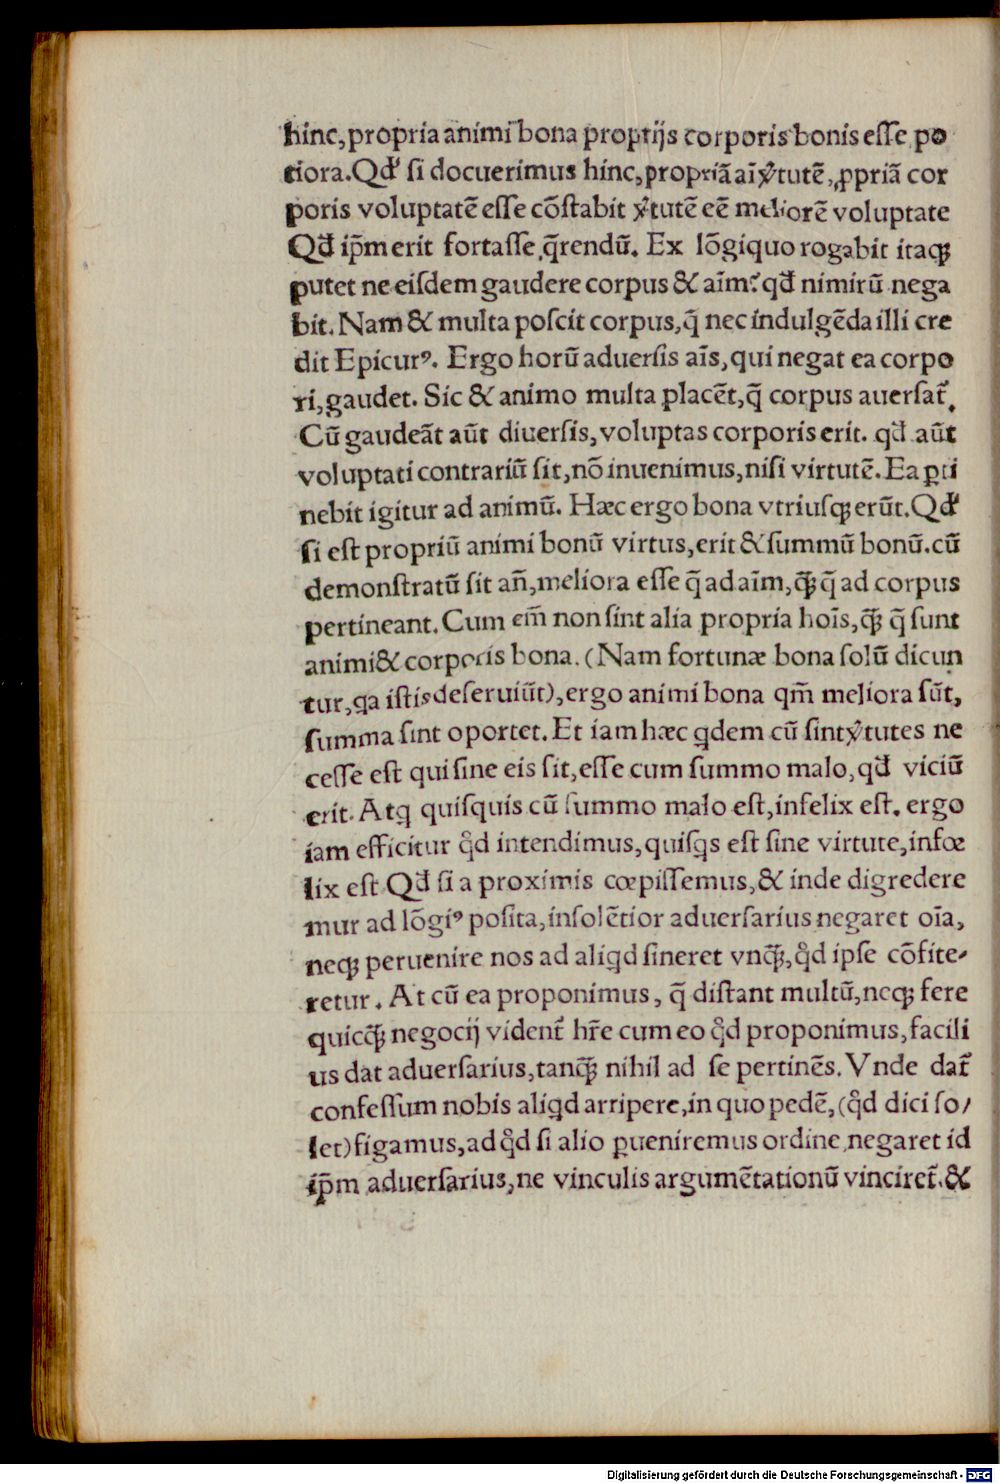 hinc,propria animi bona proprijs corporis bonis esse po
tiora.Qđ si docuerimus hinc,propriā aī v̓tutē,ꝓpriā cor
poris voluptatē esse cōstabit v̓tutē eē meliorē voluptate
Qđ ip̄m erit fortasse q̄rendū. Ex lōgiquo rogabit itaqꝫ
putet ne eisdem gaudere corpus & aīm? qđ nimirū nega
bit. Nam & multa poscit corpus,q̄ nec indulgēda illi cre
dit Epicurꝰ. Ergo horū aduersis aīs,qui negat ea corpo
ri,gaudet. Sic & animo multa placēt,q̄ corpus auersat᷑.
Cū gaudeāt aūt diuersis,voluptas corporis erit. qđ aūt
voluptati contrariū sit,nō inuenimus,nisi virtutē. Ea ꝑti
nebit igitur ad animū. Hæc ergo bona vtriusqꝫ erūt.Qđ
si est propriū animi bonū virtus,erit & summū bonū.cū
demonstratū sit añ,meliora esse q̄ ad aīm,q̄ꝫ q̄ ad corpus
pertineant. Cum em̄ non sint alia propria hoīs,q̄ꝫ q̄ sunt
animi & corporis bona. (Nam fortunæ bona solū dicun
tur,qa istis deseruiūt),ergo animi bona qm̄ meliora sūt,
summa sint oportet. Et iam hæc qdem cū sint v̓tutes ne
cesse est qui sine eis sit,esse cum summo malo,qđ viciū
erit. Atq quisquis cū summo malo est,infelix est. ergo
iam efficitur qd̓ intendimus,quisqs est sine virtute,infœ
lix est Qđ si a proximis cœpissemus,& inde digredere
mur ad lōgiꝰ posita,insolētior aduersarius negaret oīa,
neqꝫ peruenire nos ad aliqd sineret vnq̄ꝫ,qd̓ ipse cōfite-
retur. At cū ea proponimus, q̄ distant multū,neqꝫ fere
quicq̄ꝫ negocij vident᷑ hr̄e cum eo qd̓ proponimus,facili
us dat aduersarius,tanq̄ꝫ nihil ad se pertinēs. Vnde dat᷑
confessum nobis aliqd arripere,in quo pedē,(qd̓ dici so/
let)figamus,ad qd̓ si alio ꝑueniremus ordine,negaret id
ip̄m aduersarius,ne vinculis argumētationū vinciret᷑.&
Digitalisierung gefördert durch die Deutsche Forschungsgemeinschaft - DFG